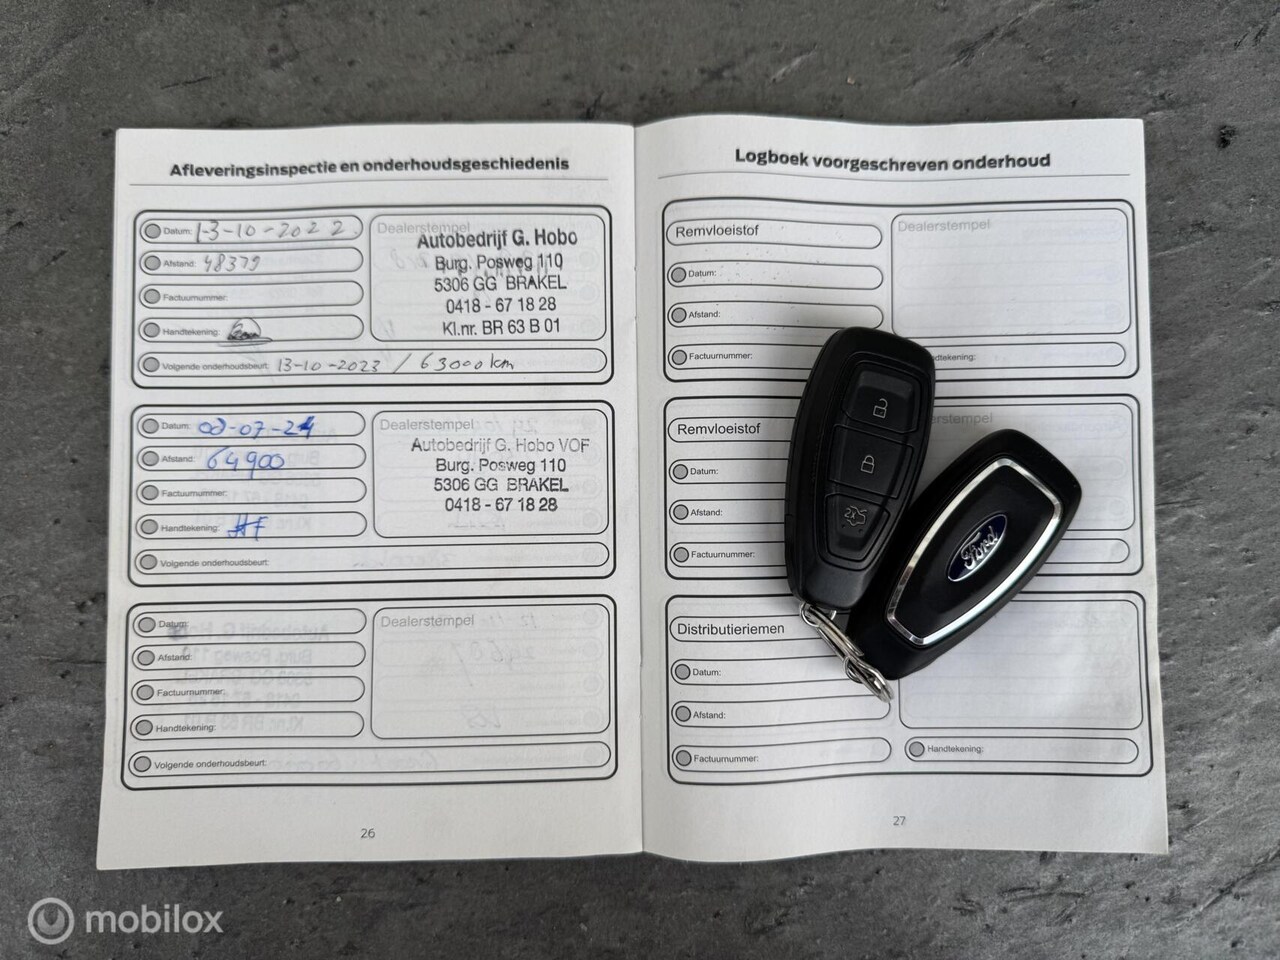 Afleveringsinspectie en onderhoudsgeschiedenis
Datum: 13-10-2022
Afstand: 48379
Factuurnummer:
Handtekening:
Volgende onderhoudsbeurt: 13-10-2023 / 63000km
Dealerstempel
Autobedrijf G. Hobo
Burg. Posweg 110
5306 GG BRAKEL
0418 - 67 18 28
Kl.nr. BR 63 B 01
Datum: -07-24
Afstand: 64900
Factuurnummer:
Handtekening:
Volgende onderhoudsbeurt:
Dealerstempel
Autobedrijf G. Hobo VOF
Burg. Posweg 110
5306 GG BRAKEL
0418 - 67 18 28
Datum:
Afstand:
Factuurnummer:
Handtekening:
Volgende onderhoudsbeurt:
Dealerstempel
26
Logboek voorgeschreven onderhoud
Remvloeistof
Datum:
Afstand:
Factuurnummer:
Dealerstempel
dtekening:
Remvloeistof
Datum:
Afstand:
Factuurnummer:
erstempel
Distributieriemen
Datum:
Afstand:
Factuurnummer:
Handtekening:
27
2x
Ford
mobilox